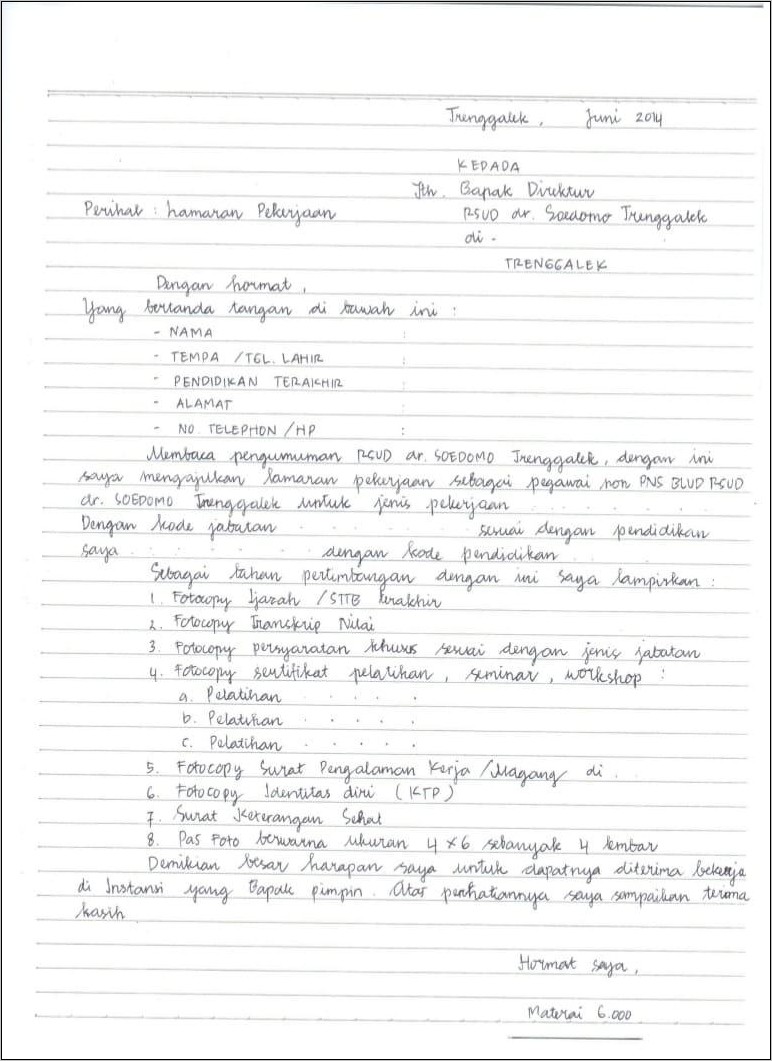 Trenggalek, Juni 2014
KEPADA
Yth. Bapak Direktur
Perihal : Lamaran Pekerjaan RSUD dr. Soedomo Trenggalek
di -
TRENGGALEK
Dengan hormat,
Yang bertanda tangan di bawah ini :
- NAMA :
- TEMPA /TGL. LAHIR :
- PENDIDIKAN TERAKHIR :
- ALAMAT :
- NO. TELEPHON /HP :
Membaca pengumuman RSUD dr. SOEDOMO Trenggalek, dengan ini
saya mengajukan lamaran pekerjaan sebagai pegawai non PNS BLUD RSUD
dr. SOEDOMO Trenggalek untuk jenis pekerjaan . . . . . .
Dengan kode jabatan . . . . . . sesuai dengan pendidikan
saya . . . . . . dengan kode pendidikan . .
Sebagai bahan pertimbangan dengan ini saya lampirkan :
1. Fotocopy Ijazah /STTB terakhir
2. Fotocopy Transkrip Nilai
3. Fotocopy persyaratan khusus sesuai dengan jenis jabatan
4. Fotocopy sertifikat pelatihan, seminar, workshop :
a. Pelatihan . . . . .
b. Pelatihan . . . . .
c. Pelatihan . . . . .
5. Fotocopy Surat Pengalaman Kerja /Magang di . .
6. Fotocopy Identitas diri (KTP)
7. Surat Keterangan Sehat
8. Pas Foto berwarna ukuran 4 x 6 sebanyak 4 lembar
Demikian besar harapan saya untuk dapatnya diterima bekerja
di Instansi yang Bapak pimpin. Atas perhatiannya saya sampaikan terima
kasih
Hormat saya,
Materai 6.000